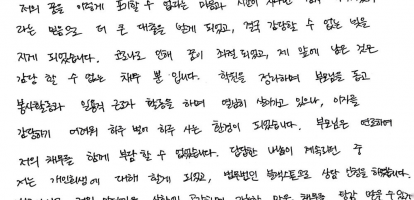 저의 꿈을 이렇게 포기할 수 없다는 마음과
라는 믿음으로 더 큰 대출을 받게 되었고, 결국 감당할 수 없는 빚을
지게 되었습니다. 코로나로 인해 꿈이 좌절되었고, 제 앞에 남은 것은
감당 할 수 없는 채무 뿐 입니다. 학원을 정리하며 부모님을 돕고
봉사활동과 일용직 근로자 활동을 하며 열심히 살아가고 있으나, 이자를
감당하기 어려워 하루 벌어 하루 사는 환경이 되었습니다. 부모님은 연로하여
저의 채무를 함께 부담 할 수 없었습니다. 답답한 나날이 계속되던 중
저는 개인회생에 대해 알게 되었고, 법무법인 상담 신청을 하였습니다.